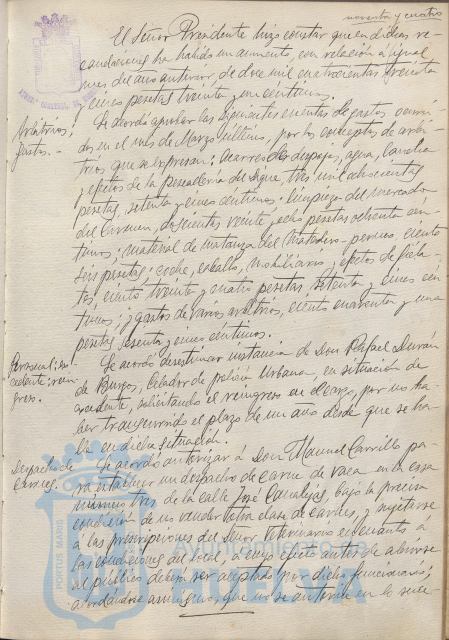 noventa y cuatro
El Señor Presidente hizo constar que en dichas re-
caudaciones ha habido un aumento, con relación a igual
mes del año anterior, de doce mil cuatrocientas treinta
y cinco pesetas treinta y un céntimos.
Arbitrios;
gastos.-
Se acordó aprobar las siguientes cuentas de gastos ocurri-
dos en el mes de Marzo último, por los conceptos de arbi-
trios que se expresan: acarreo de despojos, agua,
y efectos de la Pescadería del dique, tres mil
pesetas, setenta y cinco céntimos; limpieza del mercado
del Carmen, doscientas veinte y ocho pesetas ochenta cén-
timos; material de matanza del Matadero-porcino, ciento
seis pesetas; coche, caballo, mobiliario, efectos de fiela-
tos, ciento treinta y cuatro pesetas, setenta y cinco cén-
timos; y gastos de varios arbitrios, ciento cuarenta y una
pesetas, sesenta y cinco céntimos.
Personal; ex-
cedente; rein-
greso.
Se acordó desestimar instancia de Don Rafael Durán
de Burgos, Celador de policía Urbana, en situación de
excedente, solicitando el reingreso en el cargo, por no ha-
ber transcurrido el plazo de un año desde que se ha-
lla en dicha situación.
Despacho de
Carnes.
Se acordó autorizar a Don Manuel Carrillo pa-
ra establecer un despacho de carne de vaca en la casa
número tres de la calle José Canalejas, bajo la precisa
condición de no vender otra clase de carnes, y sujetarse
a las prescripciones del Señor Veterinario en cuanto a
las condiciones del local, a cuyo efecto antes de abrirse
al público deberá ser aceptado por dicho funcionario;
acordándose asimismo, que no se autorice en lo suce-
PORTUS MARIS
Ayuntamiento de
HUELVA